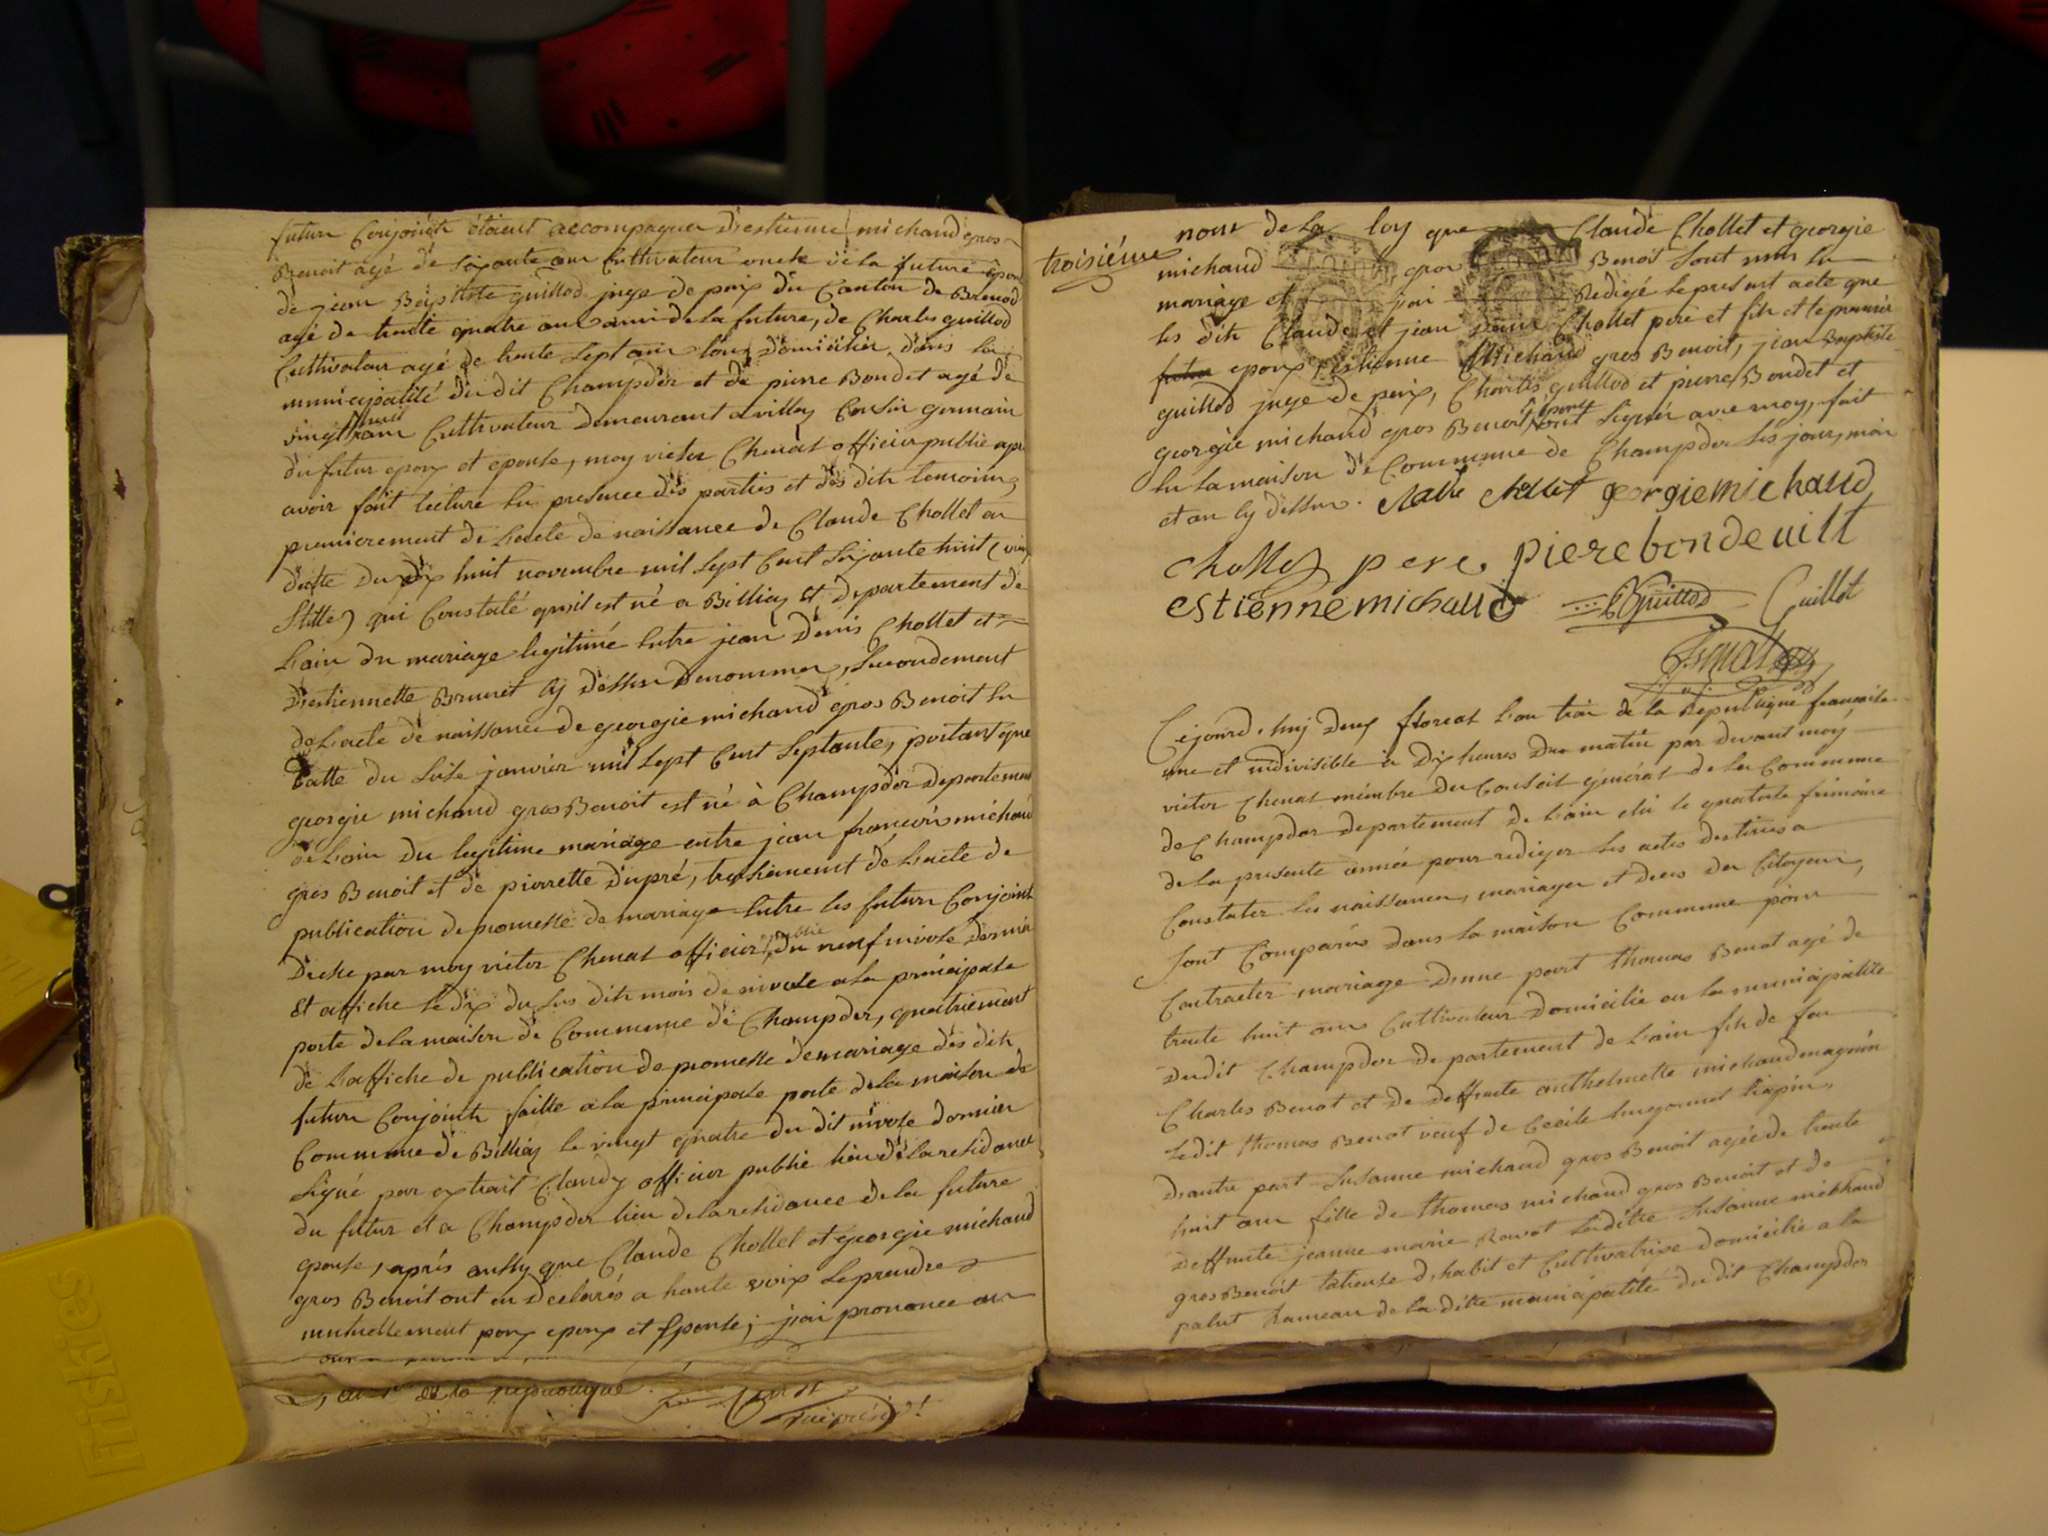 futurs Conjoinh étaient accompagner Destienne michaud gros
Benoit agé de soixante ans Cultivateur oncle de la future
de jean Baptiste guillod juge de paix du Canton de Brenod
agé de trente quatre ans ami de la future, de Charles guillod
Cultivateur agé de trente sept ans tous domicilier dans la
municipalité du dit Champdor et de pierre Bondet agé de
vingt huit ans Cultivateur demeurant a villes Cousin germain
du futur epoux et epouse, moy victor Chenat officier public apr
avoir fait lecture en presence des parties et des dith temoins,
premierement de Lacte de naissance de Claude Chollet en
datte du dix huit novembre mil sept Cent soixante huit (vieux
stille) qui Constaté quil est né a Billiaz et departement de
Lain du mariage legitime entre jean Denis Chollet et
Destiennette Brunet Cy dessus denommes, secondement
de Lacte de naissance de georgie michaud gros Benoit en
datte du seise janvier mil sept Cent septante, portant que
georgie michaud gros Benoit est né à Champdor departement
de Lain du legitime mariage entre jean francois michaud
gros Benoit et de pierrette Dupré, troisiement de Lacte de
publication de promesse de mariage entre les futurs Conjoinh
Diche par moy victor Chenat officier public du neuf nivose dernier
Et affiche le dix du sus dith mois de nivose a la principale
porte de la maison de Commune de Champdor, quatriement
de Laffiche de publication de promesse de mariage des dith
futurs Conjointh faitte a la principale porte de la maison de
Commune de Billiaz le vingt quatre du dit nivose dernier
Signé par extrait Claudy officier public lieu de la residance
du futur et a Champdor lieu de la residance de la future
epouse, après aussy que Claude Chollet et georgie michaud
gros Benoit ont eu declarés a haute voix se prendre
mutuellement pour epoux et Epouse; jai prononce au
de la republique
troisiéme
nom de la loy que Claude Chollet et georgie
michaud gros Benoit sont unis en
mariage et jai Redigé le present acte que
les dith Claude et jean Denis Chollet pere et fils et le premier
futur epoux estienne Michaud gros Benoit, jean Baptiste
guillod juge de paix, Charles guillod et pierre Bondet et
georgie michaud gros Benoit Epouse dont signér avec moy, fait
En la maison de Commune de Champdor les jour, mois
et an Cy dessus. Claude chollet georgie michaud
chollet pere pierebondeuilt
estiennemichaud JBguillod Guillot
Chenat
Cejourd. huy deux floreal Lan trois de la Republique francaise
une et indivisible à dix heures du matin par devant moy
victor Chenat membre du Conseil général de la Commune
de Champdor departement de Lain elu le quatorse frimaire
de la presente année pour rediger les actes destines a
Constater les naissances, mariages et deces des Citoyens,
Sont Comparus dans la maison Commune pour
Contracter mariage Dune part thomas Benot agé de
trente huit ans Cultivateur Domicilie en la municipalite
Dudit Champdor departement de Lain fils de feu
Charles Benot et de deffunte anthelmette michaud magnin
Ledit thomas Benot veuf de Cecile
Dautre part Susanne michaud gros Benoit agée de trente
huit ans fille de thomas michaud gros Benoit et de
deffunte jeanne marie Ravot Ladite Susanne michaud
gros Benoit talieuse dhabit et Cultivatrise domicilie a la
palut hameau de la dite municipalité du dit Champdor
ITSITES